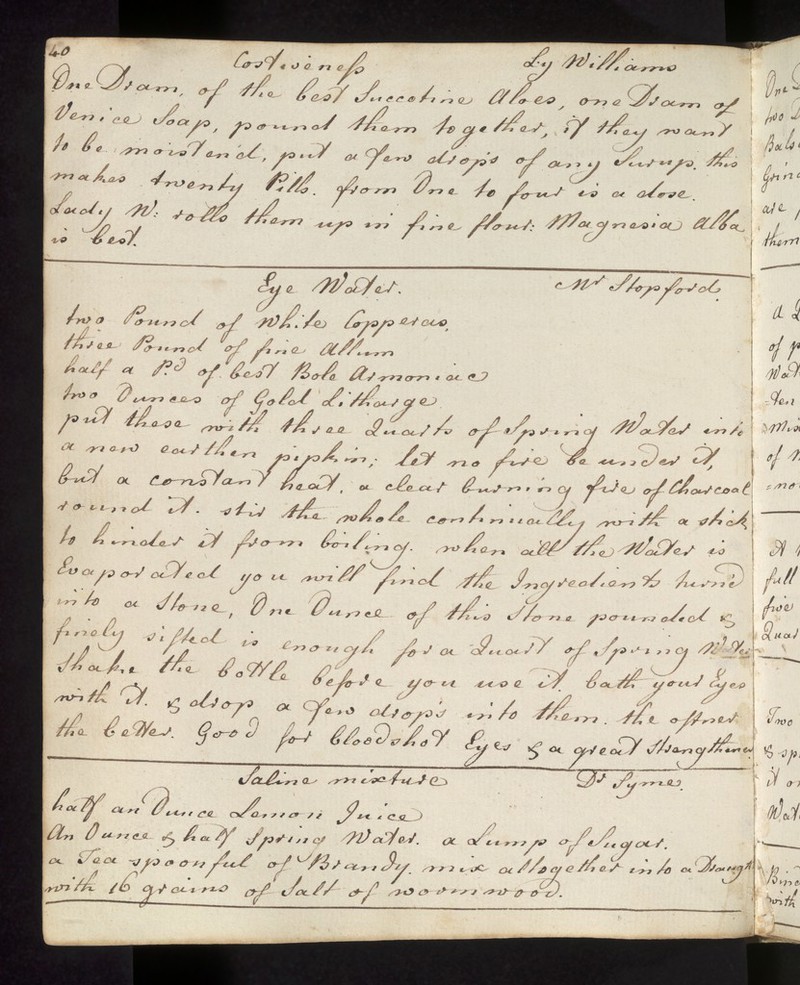 40
Costiveness Ly Williams
One Dram, of the best Succotine Aloes, one Dram of
Venice Soap, pound them together, if they want
to be moisten'd, put a few drops of any Surup. this
makes twenty Pills. from One to four is a dose.
Lady W: rolls them up in fine flour: Magnesia Alba
is best.
Eye Water. Mr Stopford.
two Pound of White Copperas,
three Pound of fine Allum
half a Pd of best Bole Armoniac
two Ounces of Gold Litharge
put these with three Quarts of Spring Water into
a new earthen pipkin; let no fire be under it,
but a constant heat, a clear burning fire of Charcoal
round it. stir the whole continually with a stick
to hinder it from boiling. when all the Water is
Evaporated you will find the Ingredients turn'd
into a Stone, One Ounce of this Stone pounded &
finely sifted is enough for a Quart of Spring Water
Shake the bottle before you use it. bath your Eyes
with it. & drop a few drops into them. the oftner
the better. Good for bloodshot Eyes & a great Strengthener
Saline mixture Dr Syme.
half an Ounce Lemon Juice
An Ounce & half Spring Water. a Lump of Sugar.
a Tea spoonful of Brandy. mix altogether into a Draught
with 16 grains of Salt of wormwood.
One
two
Bals
Grin
are
them
A
of
Wat
Mix
of
full
five
Quar
Two
& sp
it
Wat
with